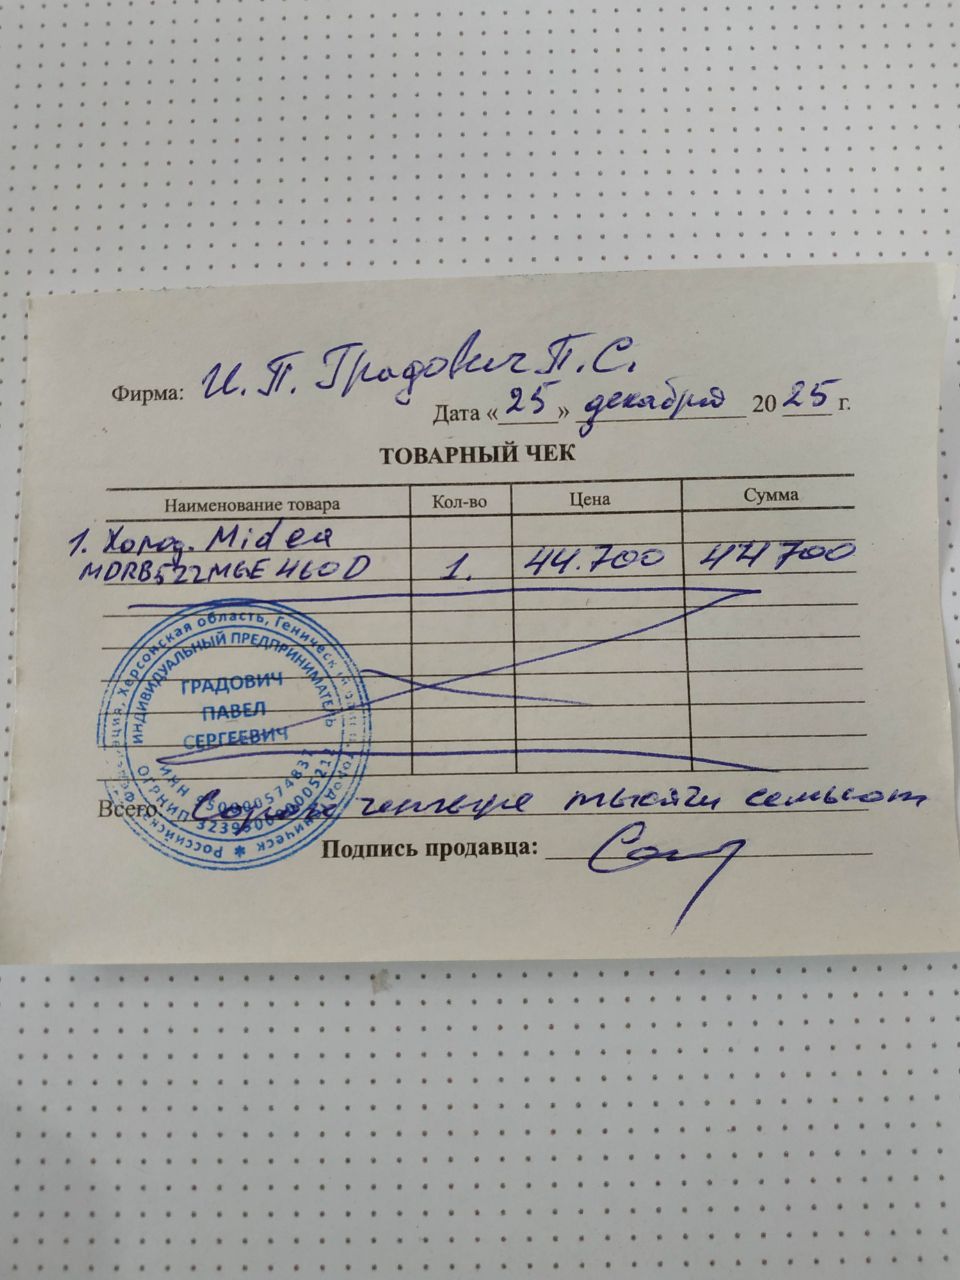 Фирма: И.П. Градович П.С.
Дата «25» декабря 2025 г.
ТОВАРНЫЙ ЧЕК
Наименование товара Кол-во Цена Сумма
1. Холод. Midea
MDRB522MGE460D 1. 44.700 44700
Всего: Сорок четыре тысячи семьсот
Подпись продавца:
Российская Федерация, Херсонская область, Генический район, город Геническ
ИНДИВИДУАЛЬНЫЙ ПРЕДПРИНИМАТЕЛЬ
ГРАДОВИЧ
ПАВЕЛ
СЕРГЕЕВИЧ
ИНН
ОГРНИП